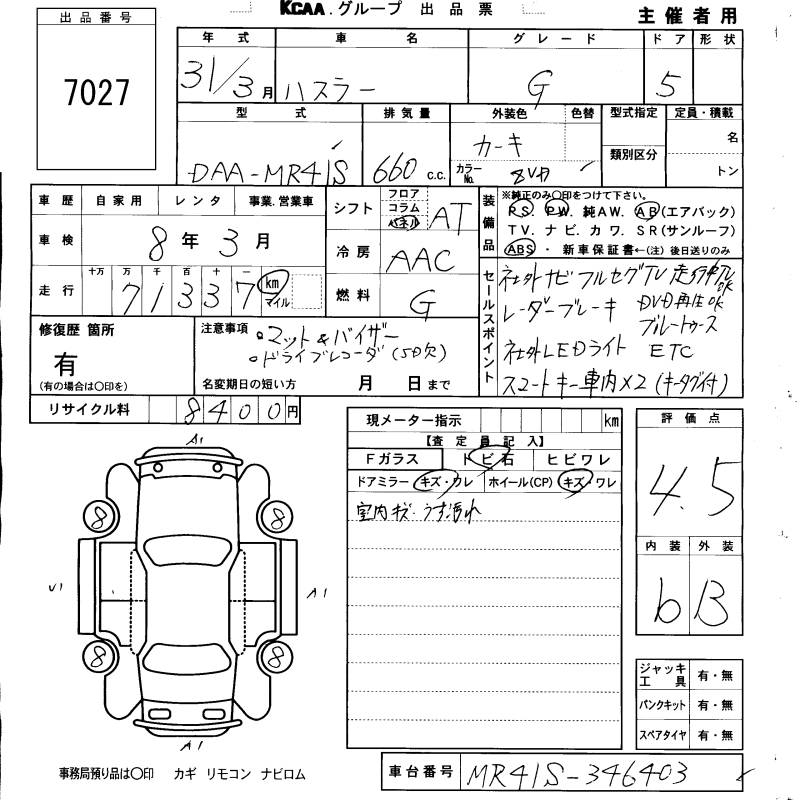 KCAA.グループ 出品票
主催者用
出品番号
7027
年式 車名 グレード ドア 形状
31/3月 ハスラー G 5
型式 排気量 外装色 色替 型式指定 定員・積載
DAA-MR41S 660 c.c. カーキ
カラーNo. 類別区分 名
トン
車歴 自家用 レンタ 事業.営業車
車検 8年3月
走行 十万 万 千 百 十 一
71337 km マイル
シフト フロア コラム パネル AT
冷房 AAC
燃料 G
装備品 ※純正のみ○印をつけて下さい。
PS. PW. 純AW. AB(エアバック)
TV. ナビ. カワ. SR(サンルーフ)
ABS・新車保証書←(注) 後日送りのみ
セールスポイント
社外ナビ フルセグTV 走行中TV OK
レーダーブレーキ DVD再生OK
ブルートゥース
社外LEDライト ETC
スマートキー車内×2 (キータグ付)
修復歴 箇所
有
(有の場合は○印を)
注意事項
・マット&バイザー
・ドライブレコーダ(SD欠)
名変期日の短い方 月 日まで
リサイクル料 8400円
現メーター指示 km
【査定員記入】
Fガラス トビ石 ヒビワレ
ドアミラー キズ・ワレ ホイール(CP) キズ・ワレ
室内キズ・うす汚れ
評価点
4.5
内装 外装
b B
ジャッキ工具 有・無
パンクキット 有・無
スペアタイヤ 有・無
A1
8 8
U1 A1
8 8
A1
事務局預り品は○印 カギ リモコン ナビロム
車台番号 MR41S-346403